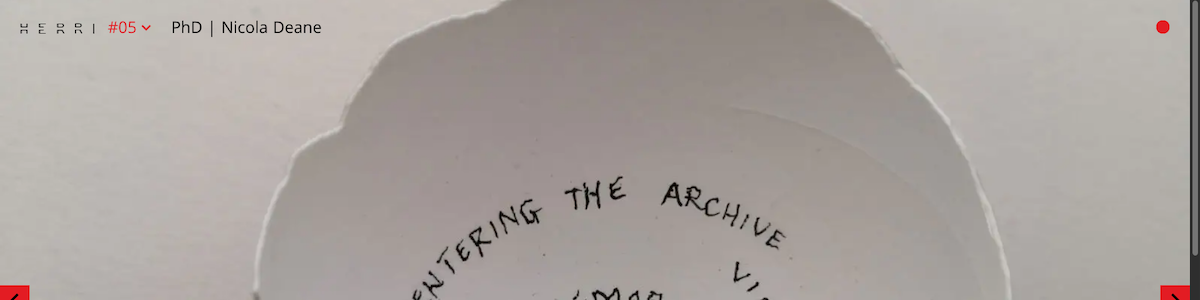 HERRI #05 PhD | Nicola Deane
ENTERING THE ARCHIVE